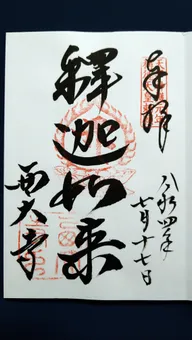 奉拝
令和四年
七月十七日
釋迦如来
西大寺